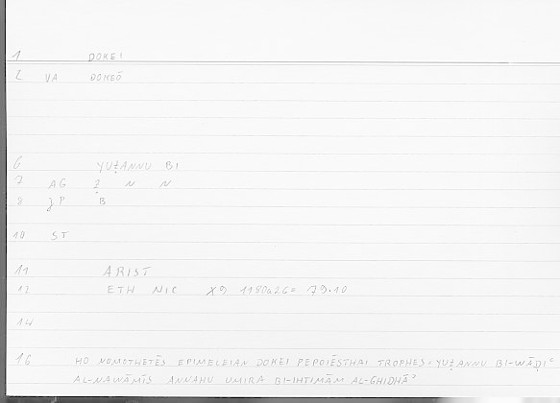 1 DOKEI
2 VA DOKEŌ
6 YUẒANNU BI
7 AG Ẓ N N
8 JP B
10 ST
11 ARIST
12 ETH NIC X9 1180a26= 79.10
14
16 HO NOMOTHETĒS EPIMELEIAN DOKEI PEPOIĒSTHAI TROPHĒS=YUẒANNU BI-WĀḌIʿ
AL-NAWĀMĪS ANNAHU UMIRA BI-IHTIMĀM AL-GHIDHĀʾ